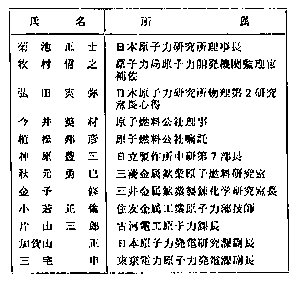 氏名 所属
菊池正士 日本原子力研究所理事長
牧村信之 原子力局原子力開発機関監理官補佐
弘田実弥 日本原子力研究所物理第2研究室長心得
今井美材 原子燃料公社理事
植松邦彦 原子燃料公社嘱託
神原豊三 日立製作所中研第7部長
秋元勇巳 三菱金属鉱業原子燃料研究室
金子修 三井金属鉱業製錬化学研究室長
小若正倫 住友金属工業原子力部技師
片山三郎 古河電工原子力課長
加賀山正 日本原子力発電研究課副長
三宅申 東京電力原子力発電課副長